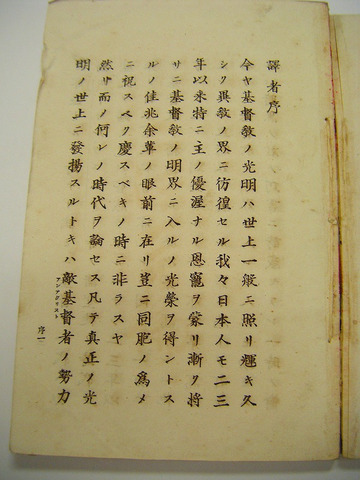 譯者序
今ヤ基督敎ノ光明ハ世上一般ニ照リ輝キ久
シク異敎ノ界ニ彷徨セル我々日本人モ二三
年以來特ニ主ノ優渥ナル恩寵ヲ蒙リ漸ク將
サニ基督敎ノ明界ニ入ルノ光榮ヲ得ントス
ルノ佳兆余輩ノ眼前ニ在リ豈ニ同胞ノ爲メ
ニ祝スヘク慶スベキノ時ニ非ラスヤ
然リ而ノ何レノ時代ヲ論セス凡テ真正ノ光
明ノ世上ニ發揚スルトキハ敵基督者ノ勢力
アンチクリスト
序一